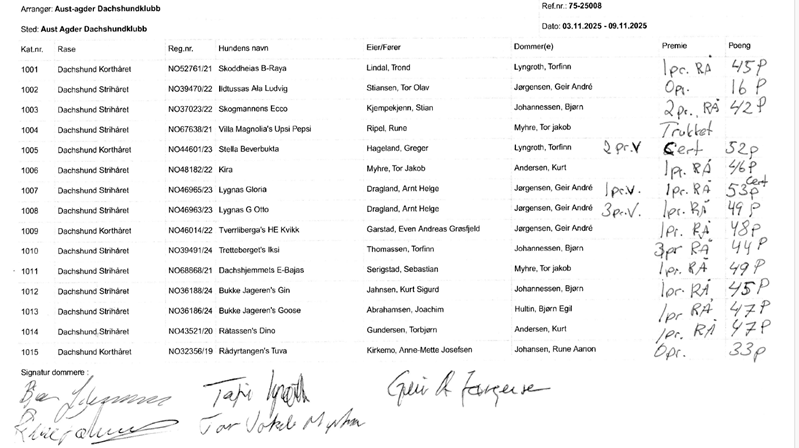 Arrangør: Aust-agder Dachshundklubb Ref.nr.: 75-25008
Sted: Aust Agder Dachshundklubb Dato: 03.11.2025 - 09.11.2025
Kat.nr. Rase Reg.nr. Hundens navn Eier/Fører Dommer(e) Premie Poeng
1001 Dachshund Korthåret NO52761/21 Skoddheias B-Raya Lindal, Trond Lyngroth, Torfinn 1pr. RÅ 45 P
1002 Dachshund Strihåret NO39470/22 Ildtussas Ala Ludvig Stiansen, Tor Olav Jørgensen, Geir André 0pr. 16 P
1003 Dachshund Strihåret NO37023/22 Skogmannens Ecco Kjempekjenn, Stian Johannessen, Bjørn 2pr. RÅ 42 P
1004 Dachshund Strihåret NO67638/21 Villa Magnolia's Upsi Pepsi Ripel, Rune Myhre, Tor jakob Trukket
1005 Dachshund Korthåret NO44601/23 Stella Beverbukta Hageland, Greger Lyngroth, Torfinn 2pr.V Cert 52p
1006 Dachshund Strihåret NO48182/22 Kira Myhre, Tor Jakob Andersen, Kurt 1pr. RÅ 46 P
1007 Dachshund Strihåret NO46965/23 Lygnas Gloria Dragland, Arnt Helge Jørgensen, Geir André 1pr.V. 1pr. RÅ 53p Cert
1008 Dachshund Strihåret NO46963/23 Lygnas G Otto Dragland, Arnt Helge Jørgensen, Geir André 3pr.V. 1pr. RÅ 49 P
1009 Dachshund Korthåret NO46014/22 Tverrliberga's HE Kvikk Garstad, Even Andreas Grøsfjeld Jørgensen, Geir André 1pr. RÅ 48P
1010 Dachshund Strihåret NO39491/24 Tretteberget's Iksi Thomassen, Torfinn Johannessen, Bjørn 3pr RÅ 44 P
1011 Dachshund Strihåret NO68868/21 Dachshjemmets E-Bajas Serigstad, Sebastian Myhre, Tor jakob 1pr. RÅ 49 P
1012 Dachshund Strihåret NO36188/24 Bukke Jageren's Gin Jahnsen, Kurt Sigurd Johannessen, Bjørn 1pr. RÅ 45 P
1013 Dachshund Strihåret NO36186/24 Bukke Jageren's Goose Abrahamsen, Joachim Hultin, Bjørn Egil 1pr RÅ 47 P
1014 Dachshund Strihåret NO43521/20 Råtassen's Dino Gundersen, Torbjørn Andersen, Kurt 1pr. RÅ 47 P
1015 Dachshund Korthåret NO32356/19 Rådyrtangen's Tuva Kirkemo, Anne-Mette Josefsen Johansen, Rune Aanon 0pr. 33p
Signatur dommere :
Geir A Jørgensen
Tor Jakob Myhre